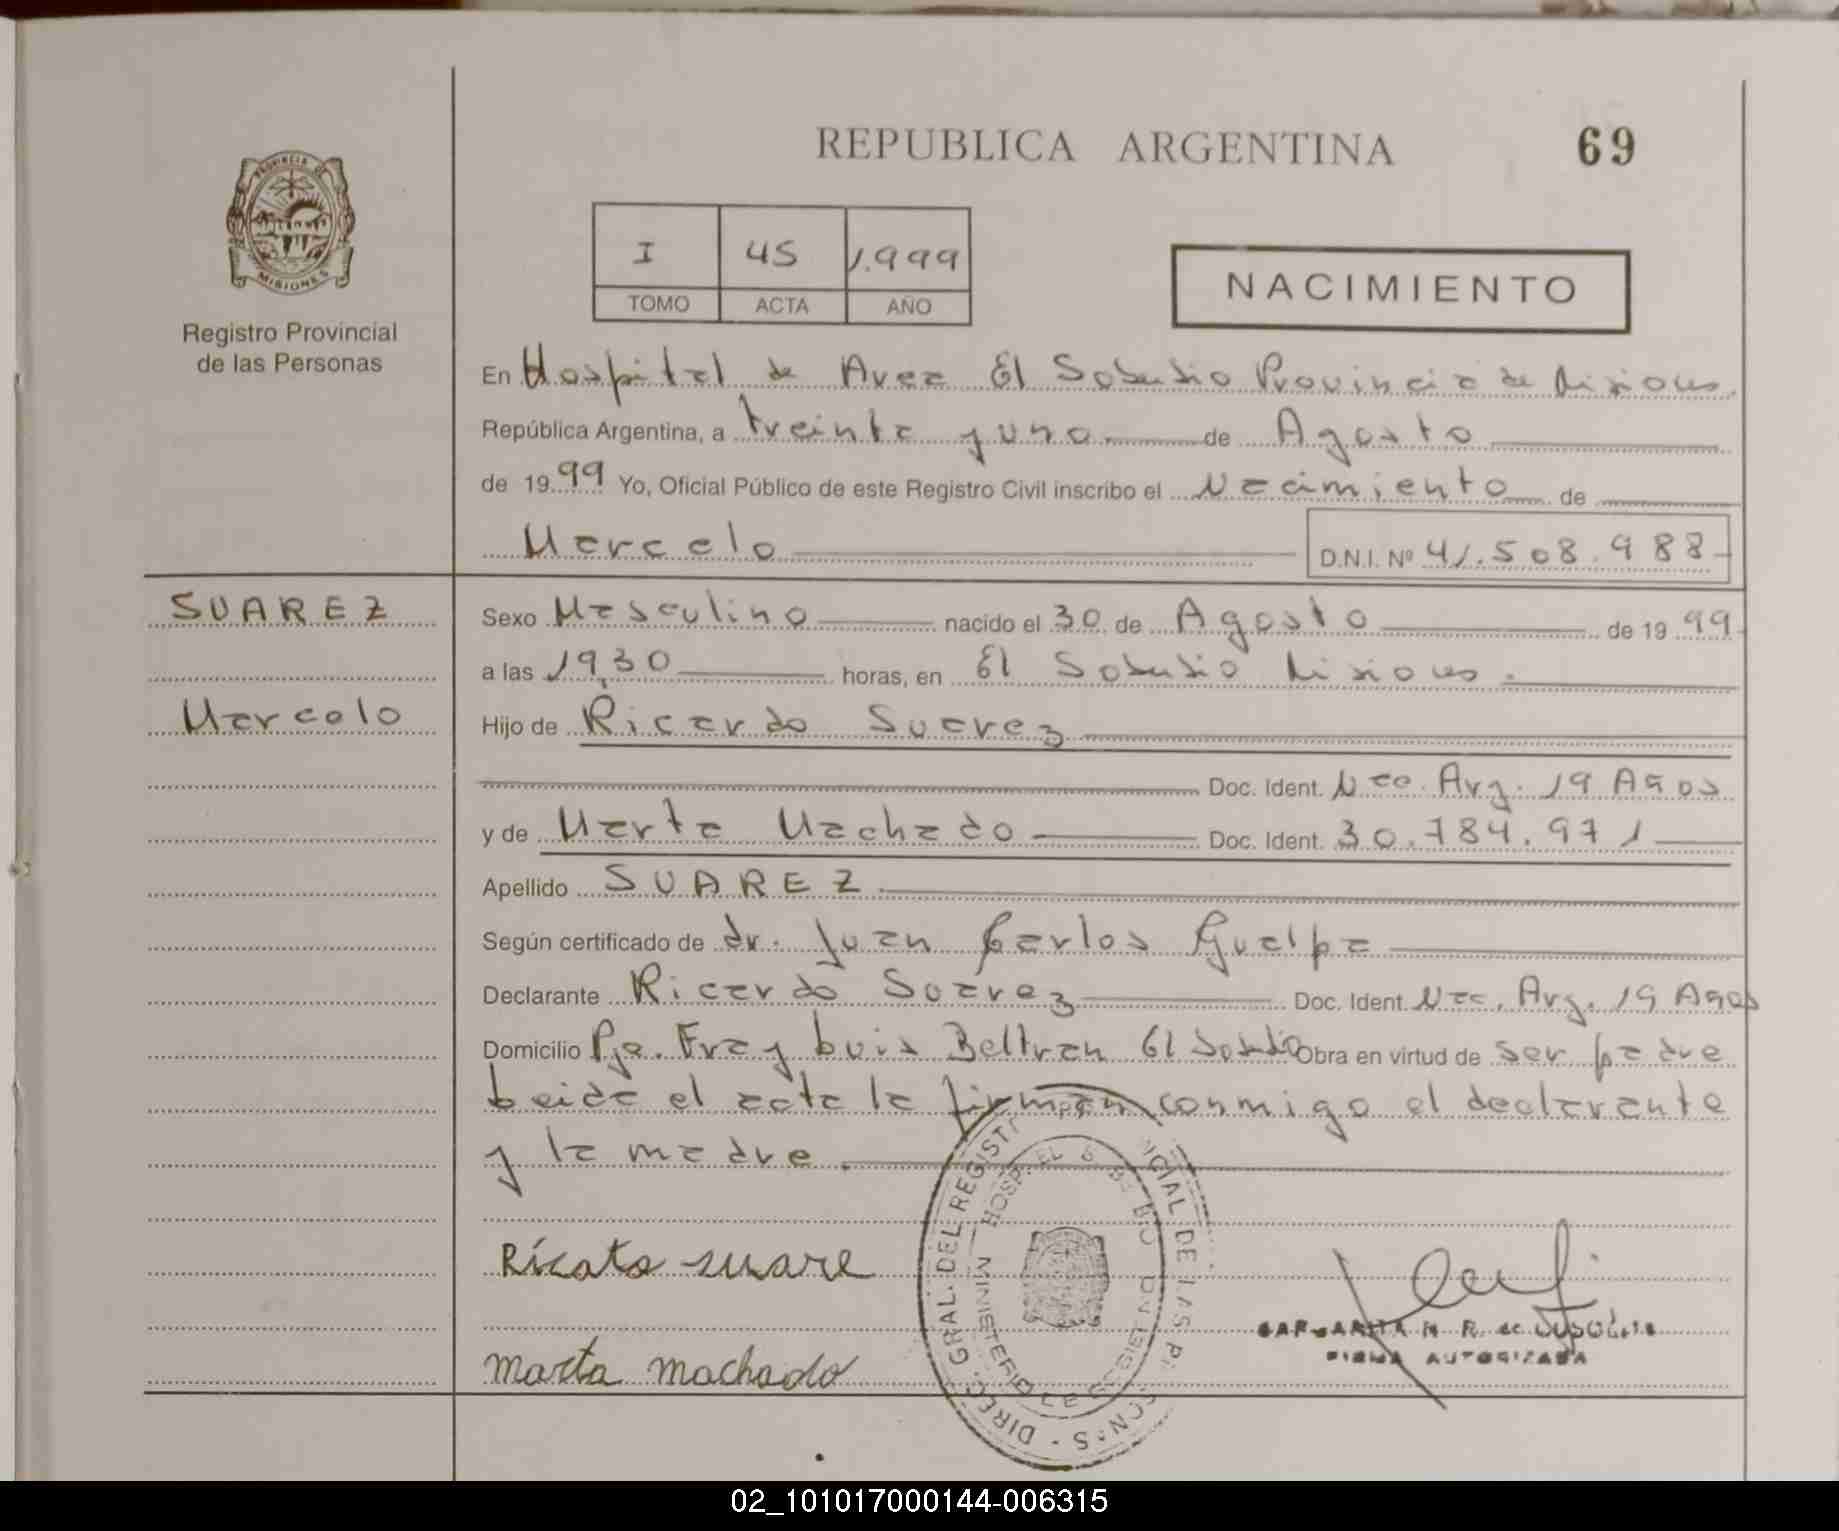 REPUBLICA ARGENTINA
69
PROVINCIA DE
MISIONES
Registro Provincial
de las Personas
I 45 1.999
TOMO ACTA AÑO
NACIMIENTO
En Hospital de Area El Soberbio Provincia de Misiones.
República Argentina, a treinta y uno de Agosto
de 1999 Yo, Oficial Público de este Registro Civil inscribo el Nacimiento de
Marcelo D.N.I. Nº 41.508.988
SUAREZ
Marcelo
Sexo Masculino nacido el 30 de Agosto de 1999
a las 19,30 horas, en El Soberbio Misiones.
Hijo de Ricardo Suarez
Doc. Ident. Nac. Arg. 19 Años
y de Marta Machado Doc. Ident. 30.784.971
Apellido SUAREZ
Según certificado de dr. Juan Carlos Gualpa
Declarante Ricardo Suarez Doc. Ident. Nac. Arg. 19 Años
Domicilio Pje. Fray Luis Beltran El Soberbio Obra en virtud de ser padre
Leida el acta la firman conmigo el declarante
y la madre.
Ricato suare
Marta machado
DIREC. GRAL. DEL REGISTRO DE LAS
HOSP. EL
MINISTERIO DE
FIRMA AUTORIZADA
02_101017000144-006315